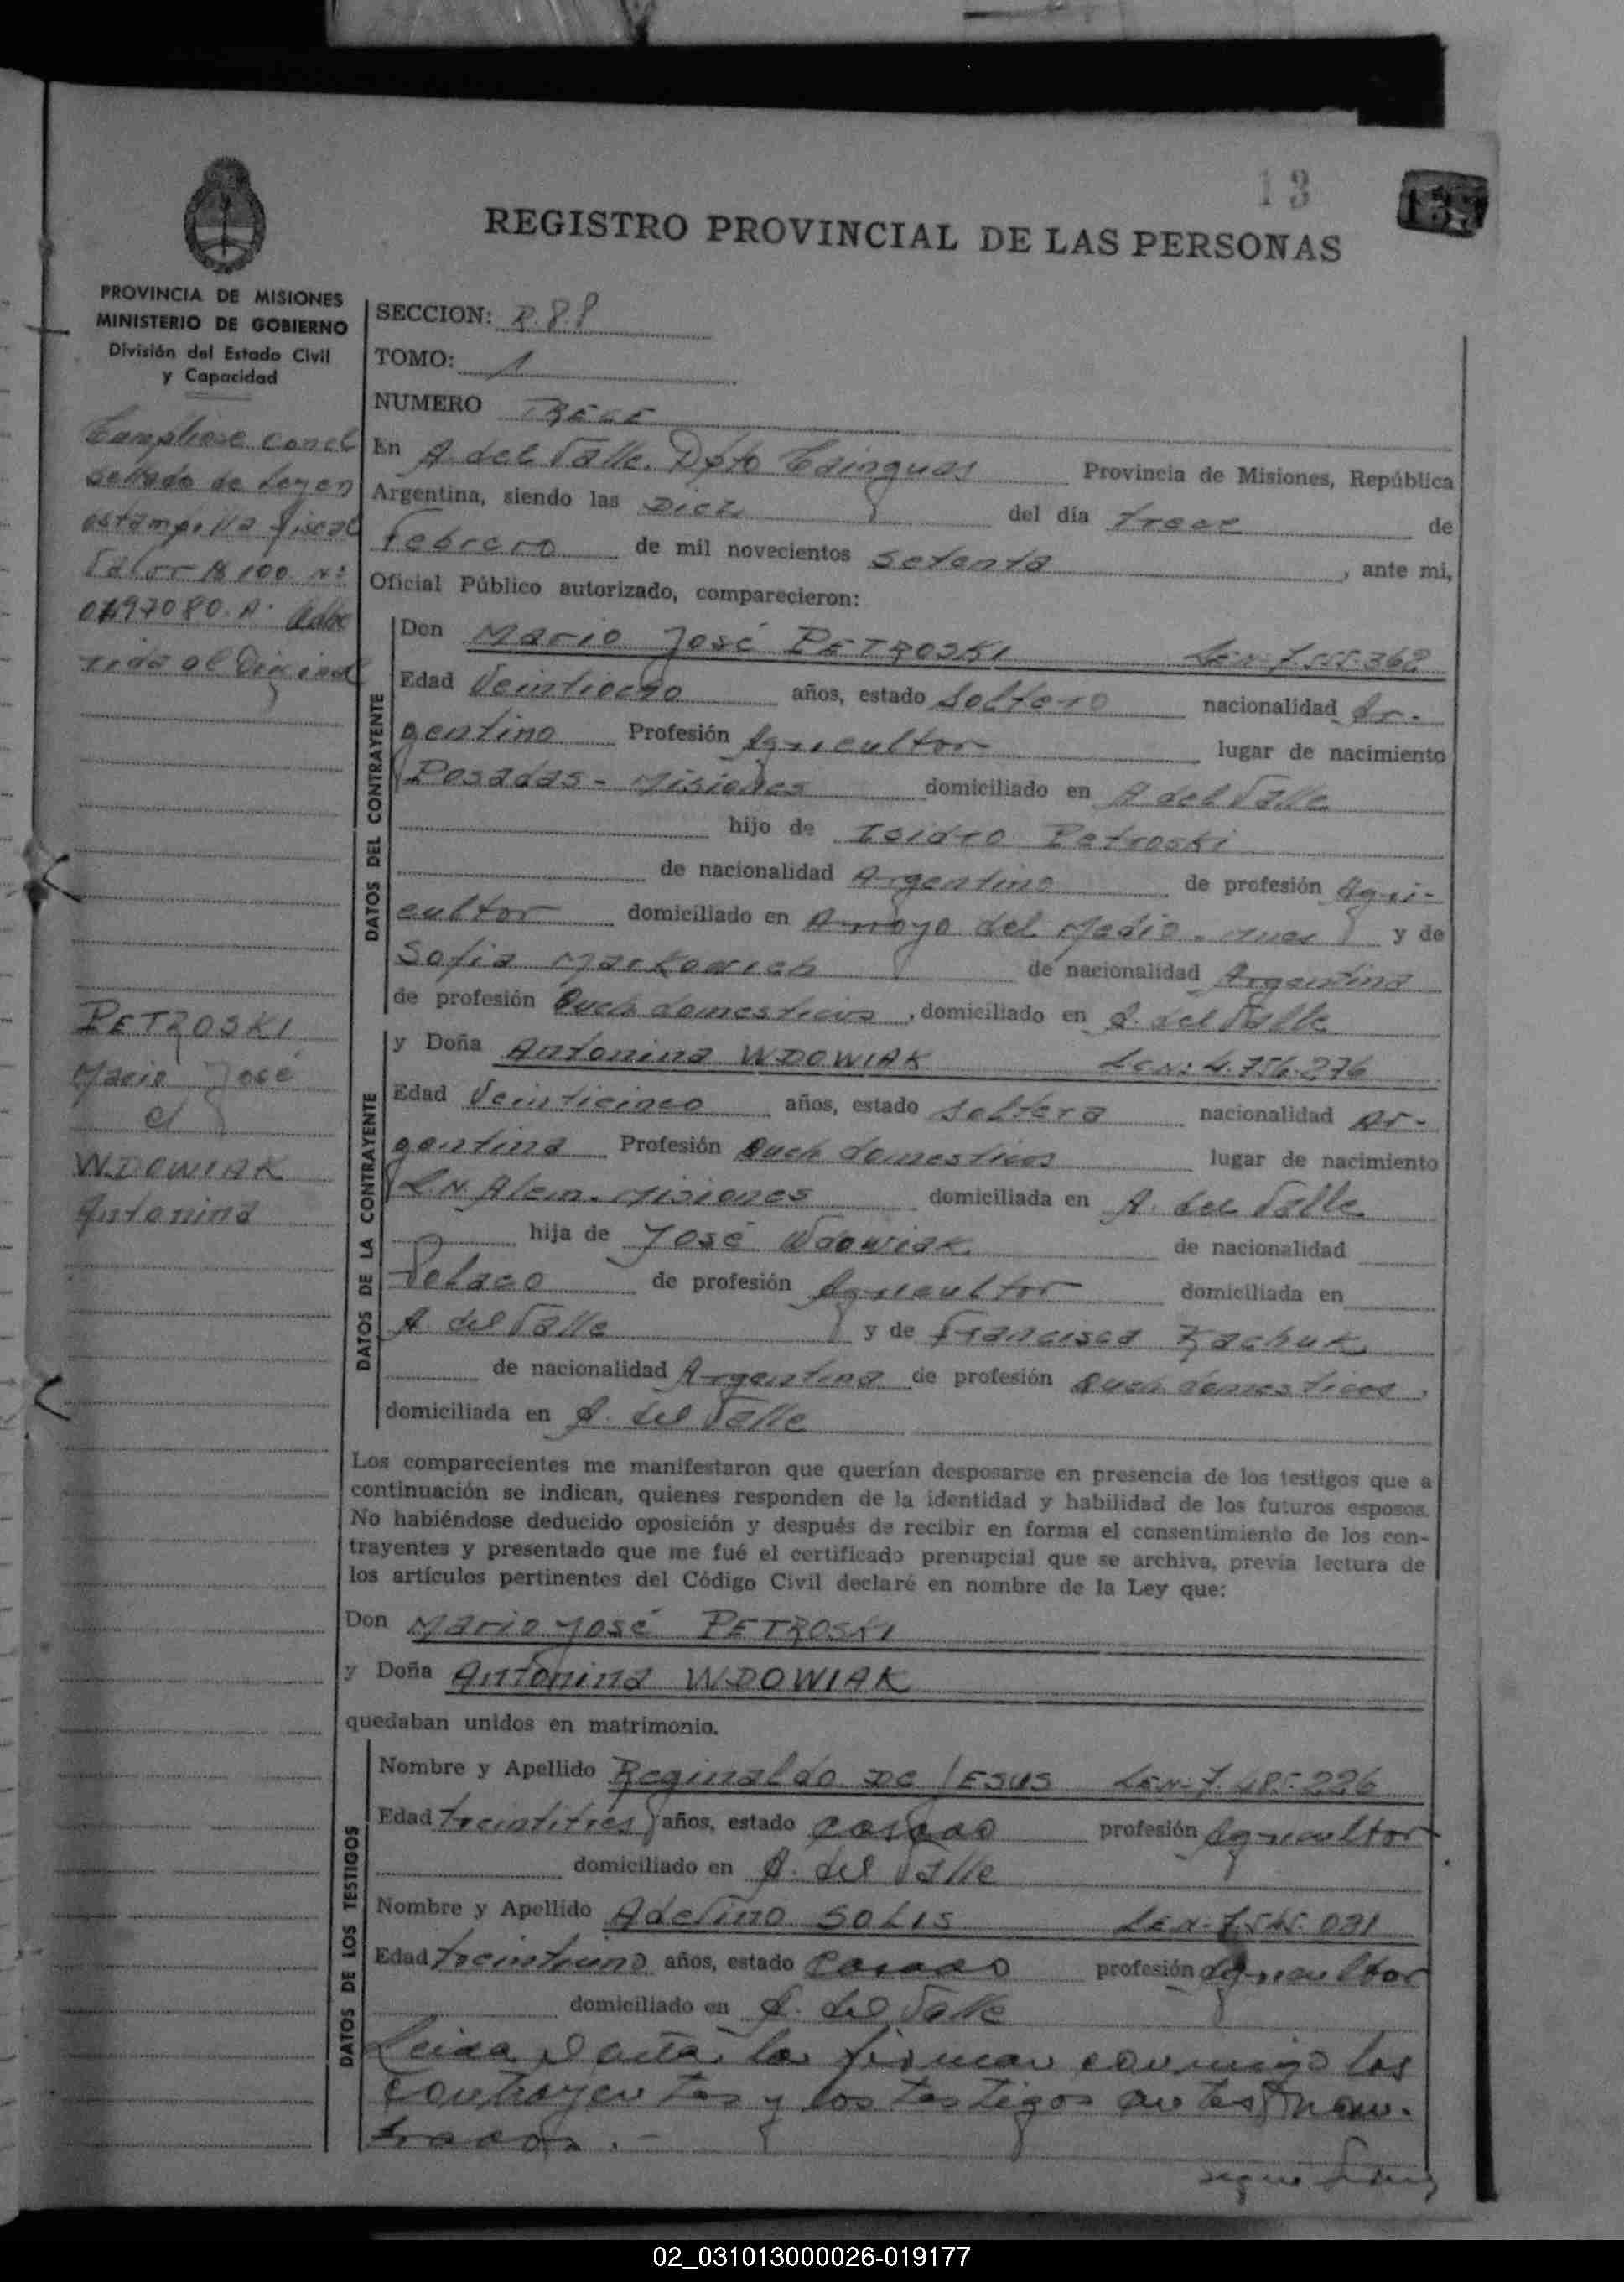 13
REGISTRO PROVINCIAL DE LAS PERSONAS
PROVINCIA DE MISIONES
MINISTERIO DE GOBIERNO
División del Estado Civil
y Capacidad
Cumpliose con el
sellado de Ley en
estampilla fiscal
Valor $ 100 Nº
al Original
PETROSKI
Mario José
c/
WDOWIAK
Antonina
SECCION: R.8.8
TOMO: 1
NUMERO TRECE
En A. del Valle. Dpto Cainguas Provincia de Misiones, República
Argentina, siendo las Diez del día trece de
Febrero de mil novecientos setenta, ante mi,
Oficial Público autorizado, comparecieron:
DATOS DEL CONTRAYENTE
Don Mario José PETROSKI L.E.Nº 7.555.362
Edad Veintiocho años, estado Soltero nacionalidad Ar-
gentino Profesión Agricultor lugar de nacimiento
Posadas - Misiones domiciliado en A del Valle
hijo de Isidro Petroski
de nacionalidad Argentino de profesión Agri-
cultor domiciliado en Arroyo del Medio. y de
Sofia Markowich de nacionalidad Argentina
de profesión Queh domesticos, domiciliado en A. del Valle
DATOS DE LA CONTRAYENTE
y Doña Antonina WDOWIAK L.C.Nº 4.756.276
Edad Veinticinco años, estado Soltera nacionalidad Ar-
gentina Profesión Queh domesticos lugar de nacimiento
L.N. Alem. Misiones domiciliada en A. del Valle
hija de José Wdowiak de nacionalidad
Polaco de profesión Agricultor domiciliada en
A. del Valle y de Francisca Zachuk
de nacionalidad Argentina de profesión Queh domesticos,
domiciliada en A. del Valle
Los comparecientes me manifestaron que querían desposarse en presencia de los testigos que a
continuación se indican, quienes responden de la identidad y habilidad de los futuros esposos.
No habiéndose deducido oposición y después de recibir en forma el consentimiento de los con-
trayentes y presentado que me fué el certificado prenupcial que se archiva, previa lectura de
los artículos pertinentes del Código Civil declaré en nombre de la Ley que:
Don Mario José PETROSKI
y Doña Antonina WDOWIAK
quedaban unidos en matrimonio.
DATOS DE LOS TESTIGOS
Nombre y Apellido Reginaldo DE JESUS L.E.Nº 7.485.226
Edad treintitres años, estado casado profesión Agricultor
domiciliado en A. del Valle
Nombre y Apellido Adelino SOLIS L.E.Nº 7.545.031
Edad treintiuno años, estado Casado profesión Agricultor
domiciliado en A. del Valle
Leida el acta, la firman conmigo los
contrayentes y los testigos antes nom-
brados.-
sigue
02_031013000026-019177